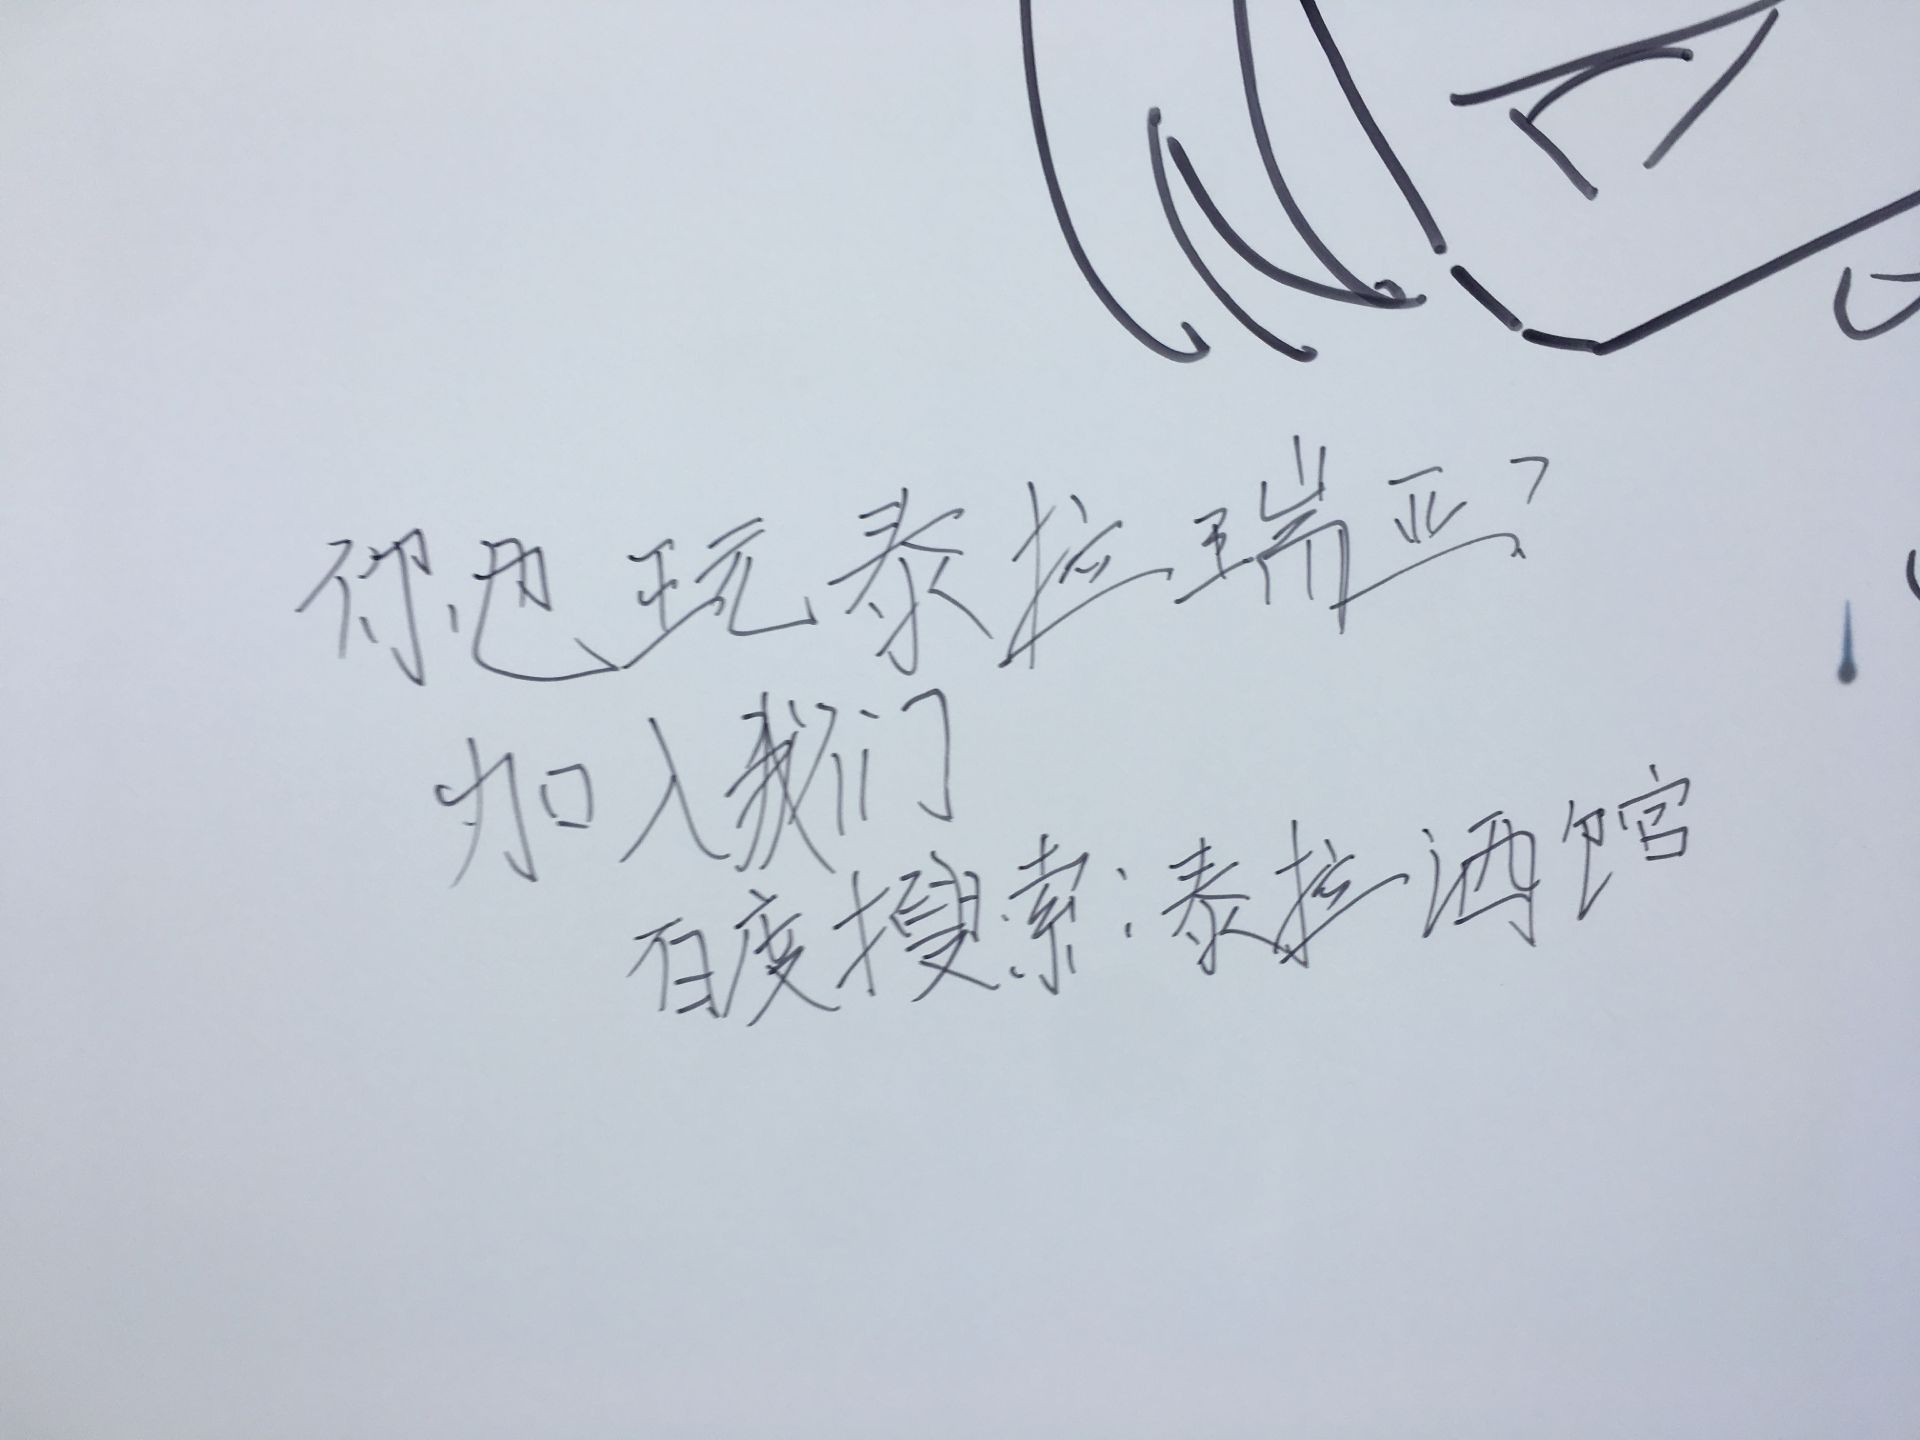 你也玩泰拉瑞亚?
加入我们
百度搜索:泰拉酒馆